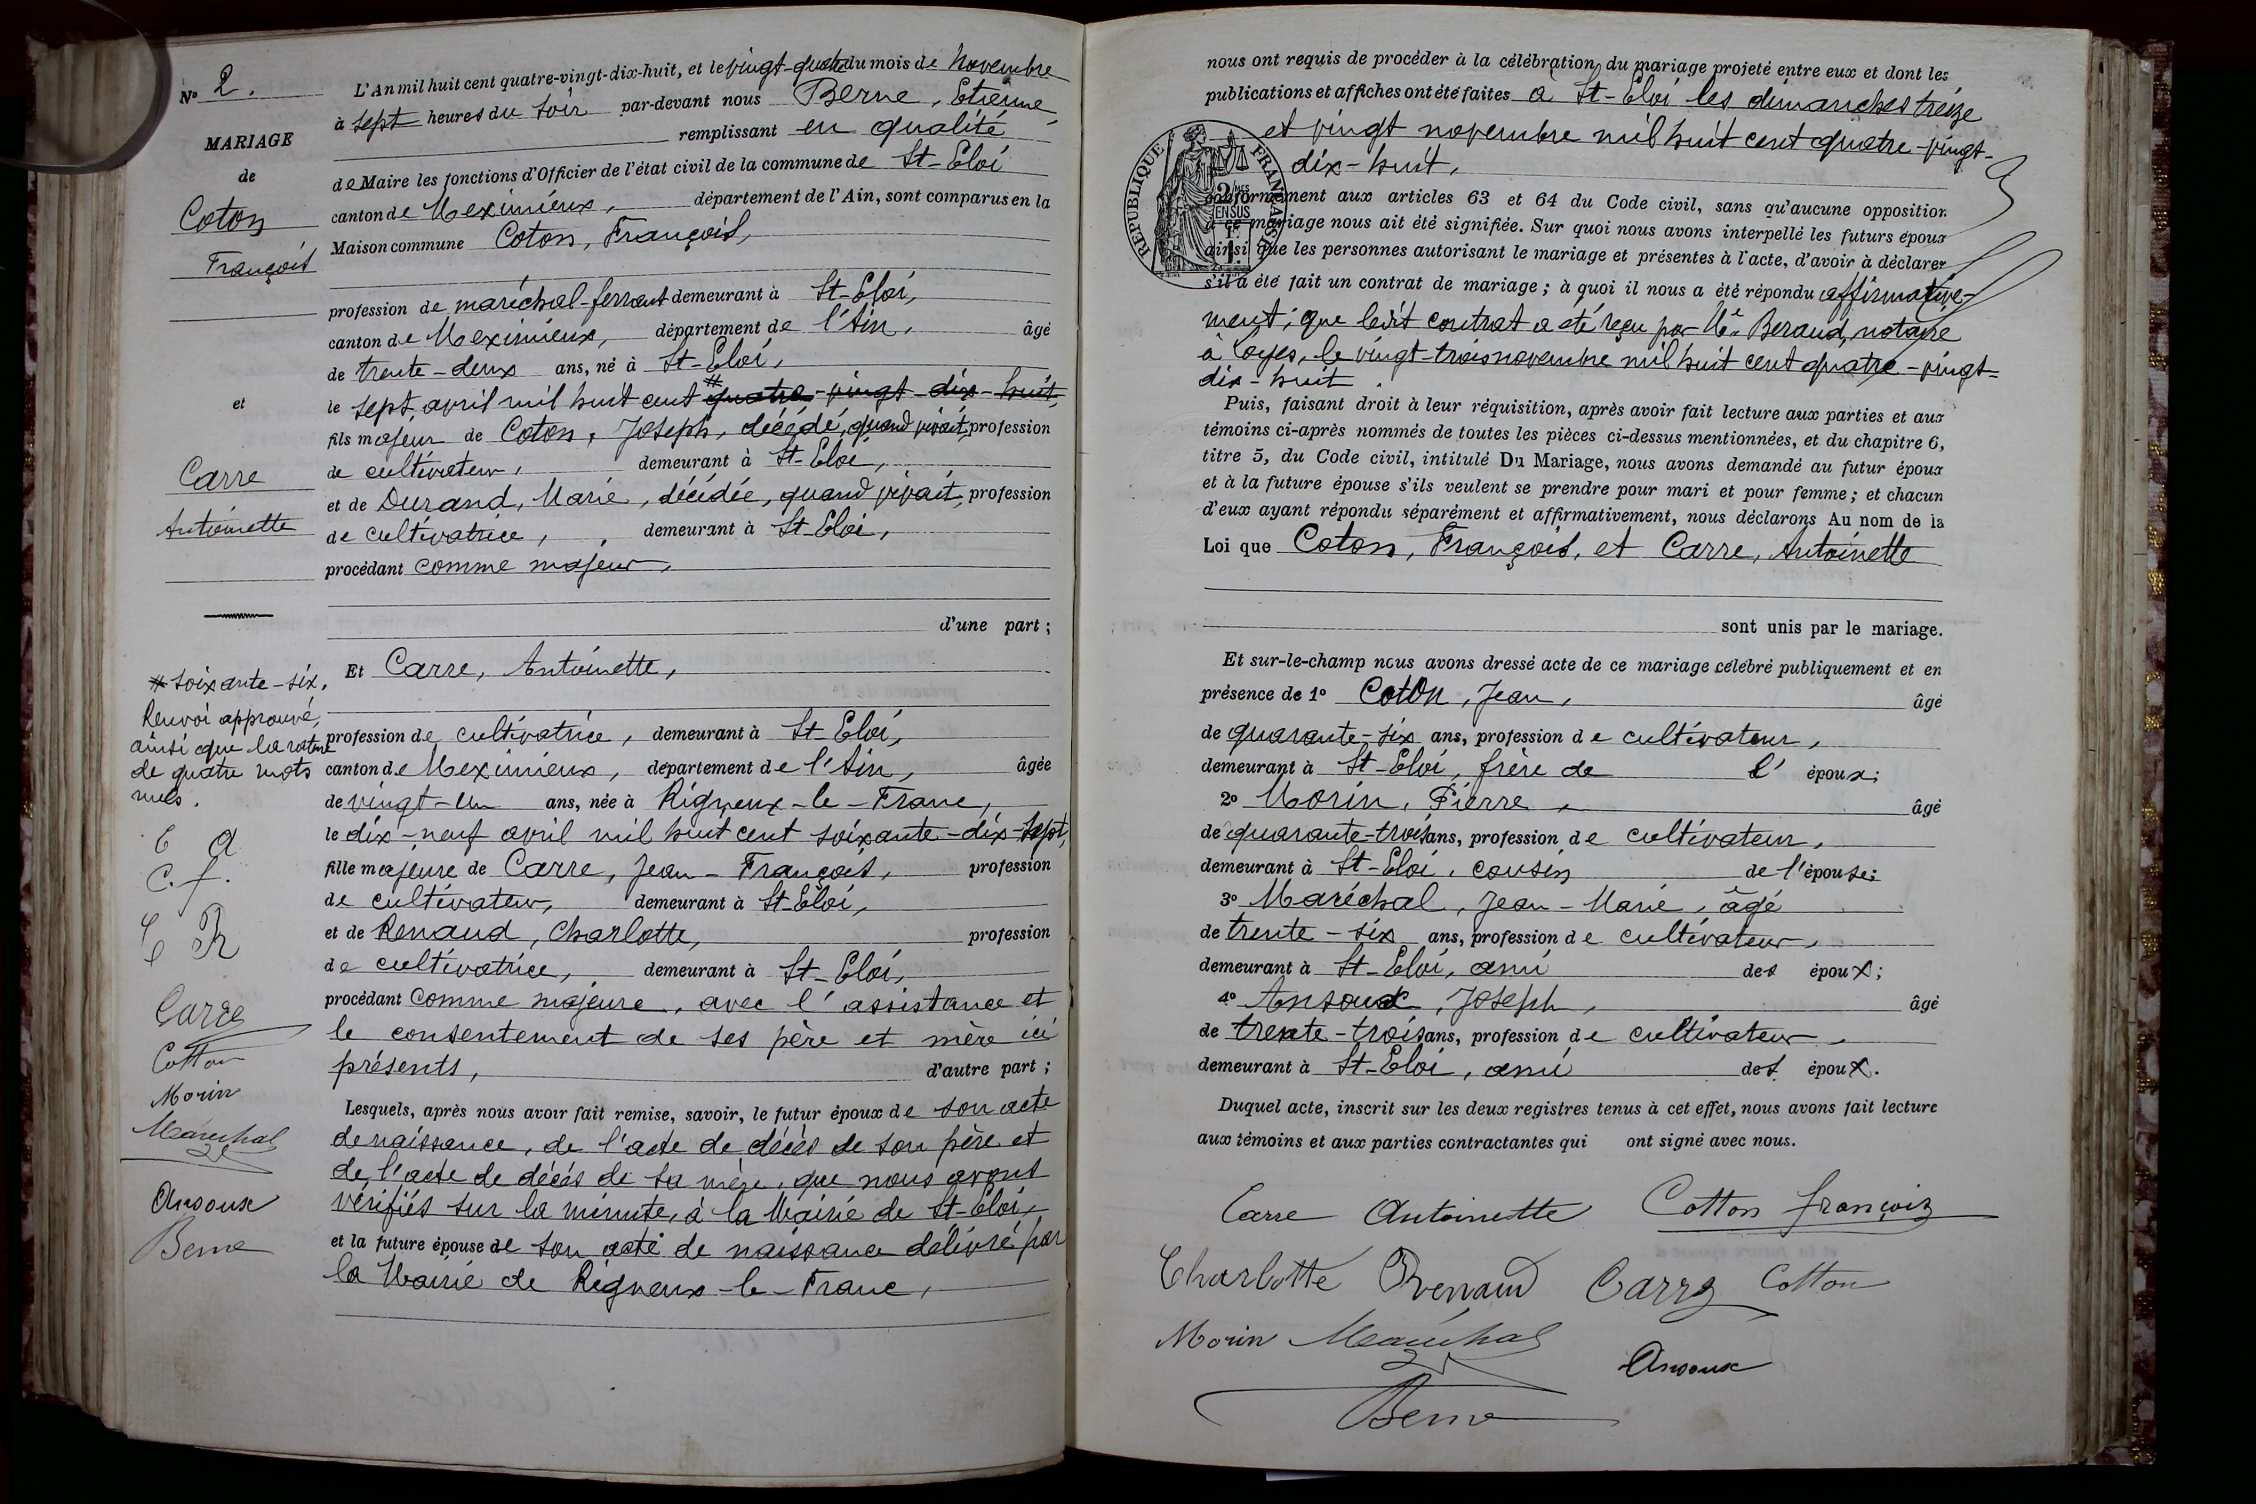 Nº 2.
MARIAGE
de
Coton
François
et
Carre
Antoinette
# soixante-six.
Renvoi approuvé,
ainsi que la rature
de quatre mots
nuls.
C a
C. f.
C R
Carre
Cotton
Morin
Maréchal
Ansoux
Berne
L'An mil huit cent quatre-vingt-dix-huit, et le vingt-quatre du mois de Novembre
à sept heures du soir par-devant nous Berne, Etienne,
remplissant en qualité
de Maire les fonctions d'Officier de l'état civil de la commune de St-Eloi
canton de Meximieux, département de l'Ain, sont comparus en la
Maison commune Coton, François,
profession de maréchal-ferrant demeurant à St-Eloi,
canton de Meximieux, département de l'Ain, âgé
de trente-deux ans, né à St-Eloi,
le sept avril mil huit cent # quatre-vingt-dix-huit,
fils majeur de Coton, Joseph, décédé, quand vivait, profession
de cultivateur, demeurant à St-Eloi,
et de Durand, Marie, décédée, quand vivait, profession
de cultivatrice, demeurant à St-Eloi,
procédant comme majeur,
d'une part;
Et Carre, Antoinette,
profession de cultivatrice, demeurant à St-Eloi,
canton de Meximieux, département de l'Ain, âgée
de vingt-un ans, née à Rigneux-le-Franc,
le dix-neuf avril mil huit cent soixante-dix-sept,
fille majeure de Carre, Jean-François, profession
de cultivateur, demeurant à St-Eloi,
et de Renaud, Charlotte, profession
de cultivatrice, demeurant à St-Eloi,
procédant comme majeure, avec l'assistance et
le consentement de ses père et mère ici
présents, d'autre part;
Lesquels, après nous avoir fait remise, savoir, le futur époux de son acte
de naissance, de l'acte de décès de son père et
de l'acte de décès de sa mère, que nous avons
vérifiés sur la minute, à la Mairie de St-Eloi,
et la future épouse de son acte de naissance délivré par
la Mairie de Rigneux-le-Franc,
nous ont requis de procéder à la célébration du mariage projeté entre eux et dont les
publications et affiches ont été faites à St-Eloi les dimanches treize
et vingt novembre mil huit cent quatre-vingt-
dix-huit,
REPUBLIQUE FRANÇAISE
2/MES
EN SUS
conformément aux articles 63 et 64 du Code civil, sans qu'aucune opposition
à ce mariage nous ait été signifiée. Sur quoi nous avons interpellé les futurs époux
ainsi que les personnes autorisant le mariage et présentes à l'acte, d'avoir à déclarer
s'il a été fait un contrat de mariage; à quoi il nous a été répondu affirmative-
ment; que ledit contrat a été reçu par Me Beraud, notaire
à Loyes, le vingt-trois novembre mil huit cent quatre-vingt-
dix-huit.
Puis, faisant droit à leur réquisition, après avoir fait lecture aux parties et aux
témoins ci-après nommés de toutes les pièces ci-dessus mentionnées, et du chapitre 6,
titre 5, du Code civil, intitulé Du Mariage, nous avons demandé au futur époux
et à la future épouse s'ils veulent se prendre pour mari et pour femme; et chacun
d'eux ayant répondu séparément et affirmativement, nous déclarons Au nom de la
Loi que Coton, François, et Carre, Antoinette
sont unis par le mariage.
Et sur-le-champ nous avons dressé acte de ce mariage célébré publiquement et en
présence de 1º Coton, Jean, âgé
de quarante-six ans, profession de cultivateur,
demeurant à St-Eloi, frère de l' époux;
2º Morin, Pierre, âgé
de quarante-trois ans, profession de cultivateur,
demeurant à St-Eloi, cousin de l'épouse;
3º Maréchal, Jean-Marie, âgé
de trente-six ans, profession de cultivateur,
demeurant à St-Eloi, ami des époux;
4º Ansoux, Joseph, âgé
de trente-trois ans, profession de cultivateur,
demeurant à St-Eloi, ami des époux.
Duquel acte, inscrit sur les deux registres tenus à cet effet, nous avons fait lecture
aux témoins et aux parties contractantes qui ont signé avec nous.
Carre Antoinette Cotton françois
Charlotte Renaud Carre Cotton
Morin Maréchal
Ansoux
Berne